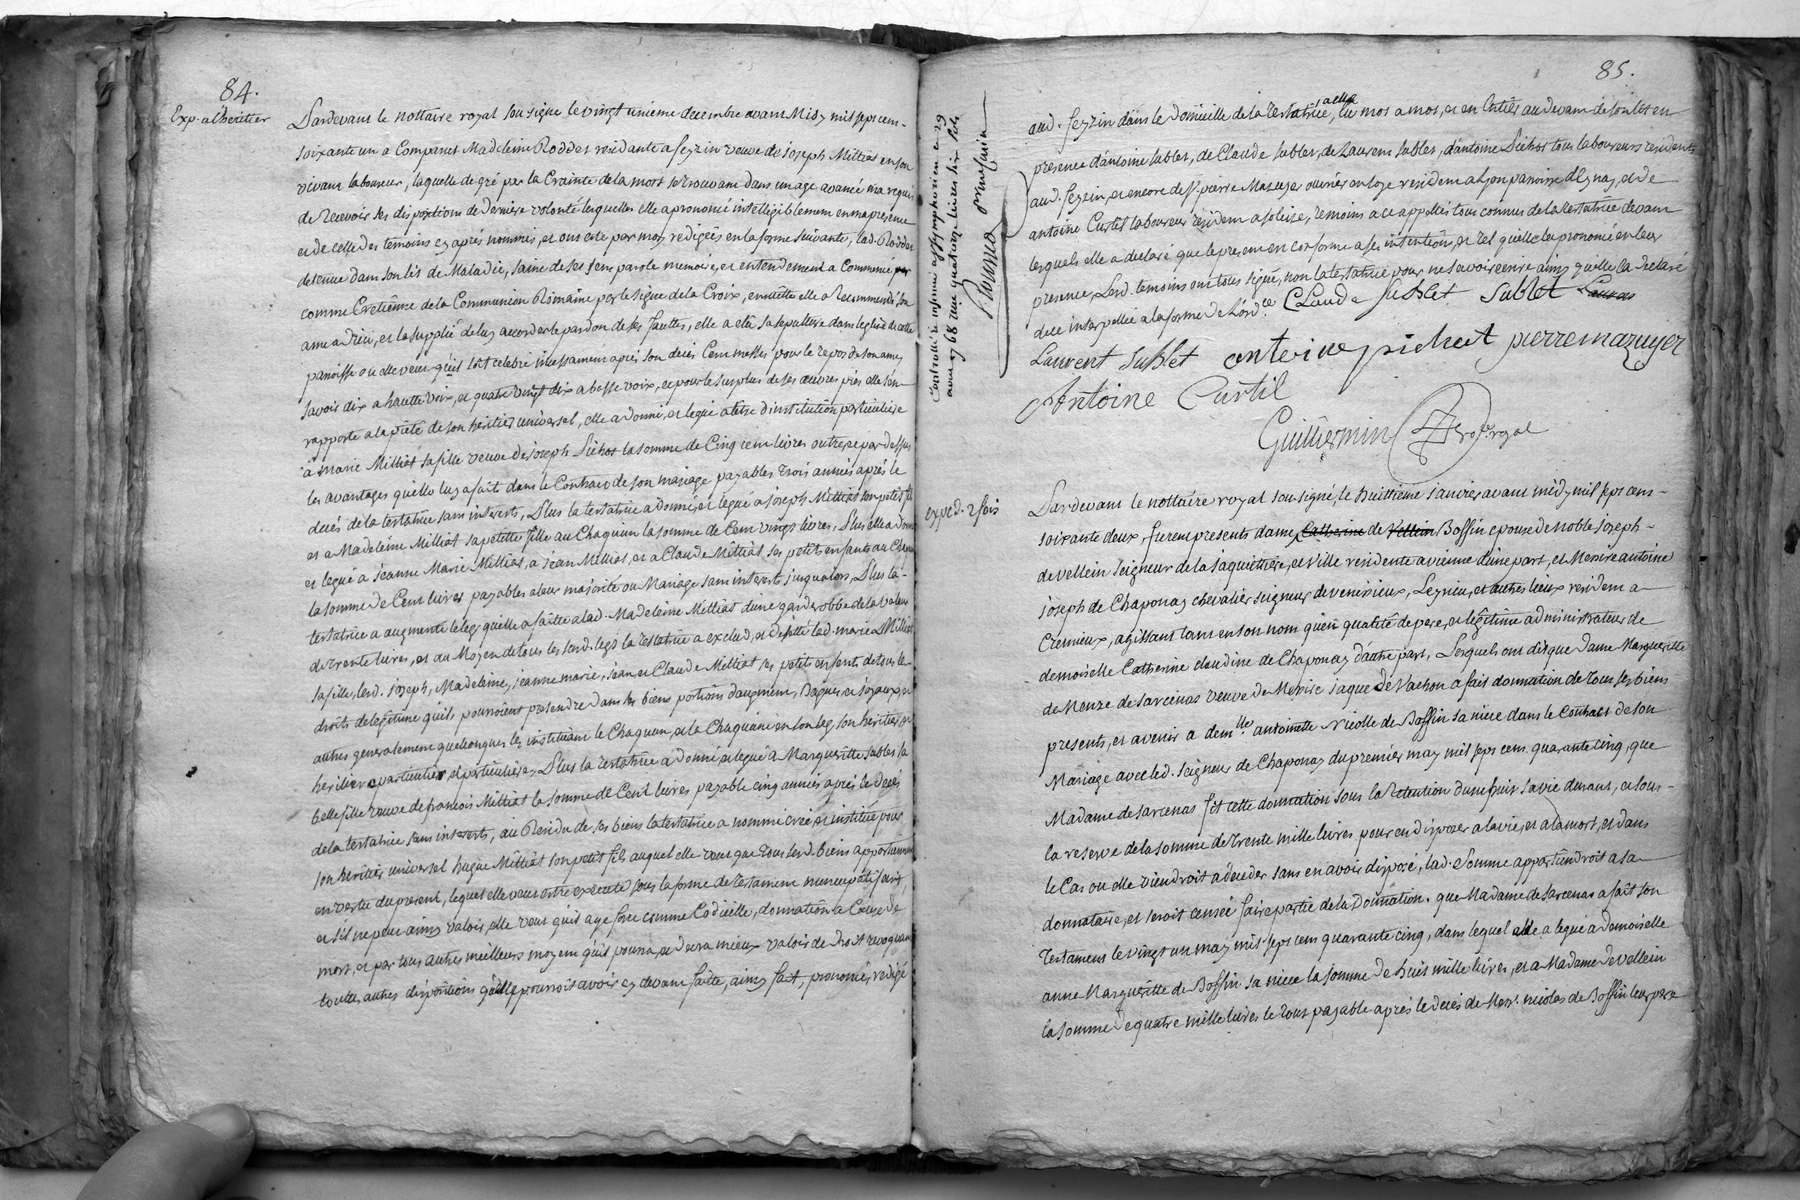 84.
Exp. a l'heritier
Pardevant le nottaire royal soussigné le vingt unieme decembre avant Midy mil sept cent
soixante un a Comparut Madeleine Roddet residante a feyzin veuve de joseph Milliat en son
vivant laboureur, laquelle de gré par la Crainte de la mort se trouvant dans un age avancé m'a requis
de recevoir ses dispositions de derniere volonté lesquelles elle a prononcé intelligiblement en ma presence
et de celle des temoins cy après nommés, et ont esté par moy redigées en la forme suivante, lad. Roddet
detenue dans son lit de Maladie, saine de ses sens parole memoire, et entendement a Commencé par
comme Cretienne de la Communion Romaine par le signe de la Croix, ensuitte elle a recommandé son
ame a Dieu, et la supplié de luy accorder le pardon de ses fauttes, elle a élû sa sepulture dans l'eglise de cette
paroisse ou elle veut qu'il soit celebré incessament après son decès Cent messes pour le repos de son ame,
savoir dix a hautte voix, et quatre vingt dix a basse voix, et pour le surplus de ses œuvres pies elle s'en
rapporte a la pieté de son heritier universel, elle a donné, et legué a titre d'institution particuliere
a marie Milliat sa fille veuve de joseph Pichot la somme de Cinq cent livres outre et par dessus
les avantages qu'elle luy a fait dans le Contract de son mariage payables trois années après le
decés de la testatrice sans interets, Plus la testatrice a donné, et legué a joseph Milliat son petit fils
et a Madeleine Milliat sa petitte fille au Chaqu'un la somme de Cent vingt livres, Plus elle a donné
et legué a jeanne Marie Milliat, a jean Milliat, et a Claude Milliat ses petits enfants au Chaqu'un
la somme de Cent livres payables a leur majorité ou Mariage sans interets jusqu'alors, Plus la
testatrice a augmenté le legs qu'elle a faitte a lad. Madeleine Milliat d'une garderobbe de la valeur
de trente livres, et au Moyen de tous les susd. legs la testatrice a exclud, et dejetté lad. marie Milliat
sa fille, lesd. joseph, Madeleine, jeanne marie, jean, et Claude Milliat ses petits enfants de tous les
droits de legitime qu'ils pourroient pretendre dans ses biens portions d'augment, bagues, et joyaux, et
autres generalement quelconques les instituant le Chaqu'un, et la Chaqu'une en son leg son heritier et
heritiere particulier et particuliere, Plus la testatrice a donné, et legué a Margueritte Sublet sa
belle fille veuve de francois Milliat la somme de Cent livres payable cinq années après le decès
de la testatrice sans interets, au Residu de ses biens la testatrice a nommé créé et institué pour
son heritier universel hugue Milliat son petit fils auquel elle veut que tous sesd. biens appartiennent
en vertu du present, lequel elle veut estre executé sous la forme de testament noncupatif écrit,
et s'il ne peut ainsy valoir, elle veut qu'il aye force comme Codicille, donnation a Cause de
mort, et par tous autres meilleurs moyens qu'il pourra, et devra mieux valoir de droit revoquant
toutes autres dispositions qu'elle pourroit avoir cy devant faitte, ainsy fait, prononcé, redigé
Controllé
85.
aud. feyzin dans le Domicille de la testatrice, a elle lu mot a mot, et en entier au devant de son lit en
presence d'antoine sublet, de Claude sublet, de Laurent sublet, d'antoine Pichot tous laboureurs residents
aud. feyzin, et encore de Sr. pierre Mazuyer ouvrier en soye resident a Lyon paroisse d'Eynay, et de
antoine Curtil laboureur resident a solaise, temoins a ce appellés tous connus de la testatrice devant
lesquels elle a declaré que le present est conforme a ses intentions, et tel qu'elle l'a prononcé en leur
presence, Lesd. temoins ont tous signé, non la testatrice pour ne savoir écrire ainsy qu'elle l'a declaré
de ce interpellée a la forme de l'ord.ce Claude Sublet Sublet
Laurent Sublet antoine pichut pierre mazuyer
Antoine Curtil
Guilliermin not.re royal
exped. 2 fois
Pardevant le nottaire royal soussigné, le huittieme janvier avant midy mil sept cent
soixante deux, furent presents dame Catherine de Vellein Boffin epouse de noble joseph
de vellein seigneur de la saquittiere, et ville residente a vienne d'une part, et Messire antoine
joseph de Chaponay chevalier seigneur de venissieux, Leyrieu, et autres lieux resident a
Cremieux, agissant tant en son nom qu'en qualité de pere, et legitime administrateur de
demoiselle Catherine claudine de Chaponay d'autre part, Lesquels ont dit que Dame Margueritte
de Menze de sarcenas veuve de Messire jaque de Vachon a fait donnation de tous ses biens
presents, et avenir a dem.lle antoinette Nicolle de Boffin sa niece dans le Contract de son
Mariage avec led. seigneur de Chaponay du premier may mil sept cent quarante cinq, que
Madame de sarcenas fit cette donnation sous la retention d'usufruit sa vie durant, et sous
la reserve de la somme de trente mille livres pour en disposer a la vie, et a la mort, et dans
le Cas ou elle viendroit a deceder sans en avoir disposé, lad. somme appartiendroit a sa
donnataire, et seroit censée faire partie de la Donnation. que Madame de sarcenas a fait son
testament le vingt un may mil sept cent quarante cinq, dans lequel elle a legué a demoiselle
anne Margueritte de Boffin sa niece la somme de huit mille livres, et a Madame de vellein
la somme de quatre mille livres le tout payable après le decès de Mess.r nicolas de Boffin leur pere